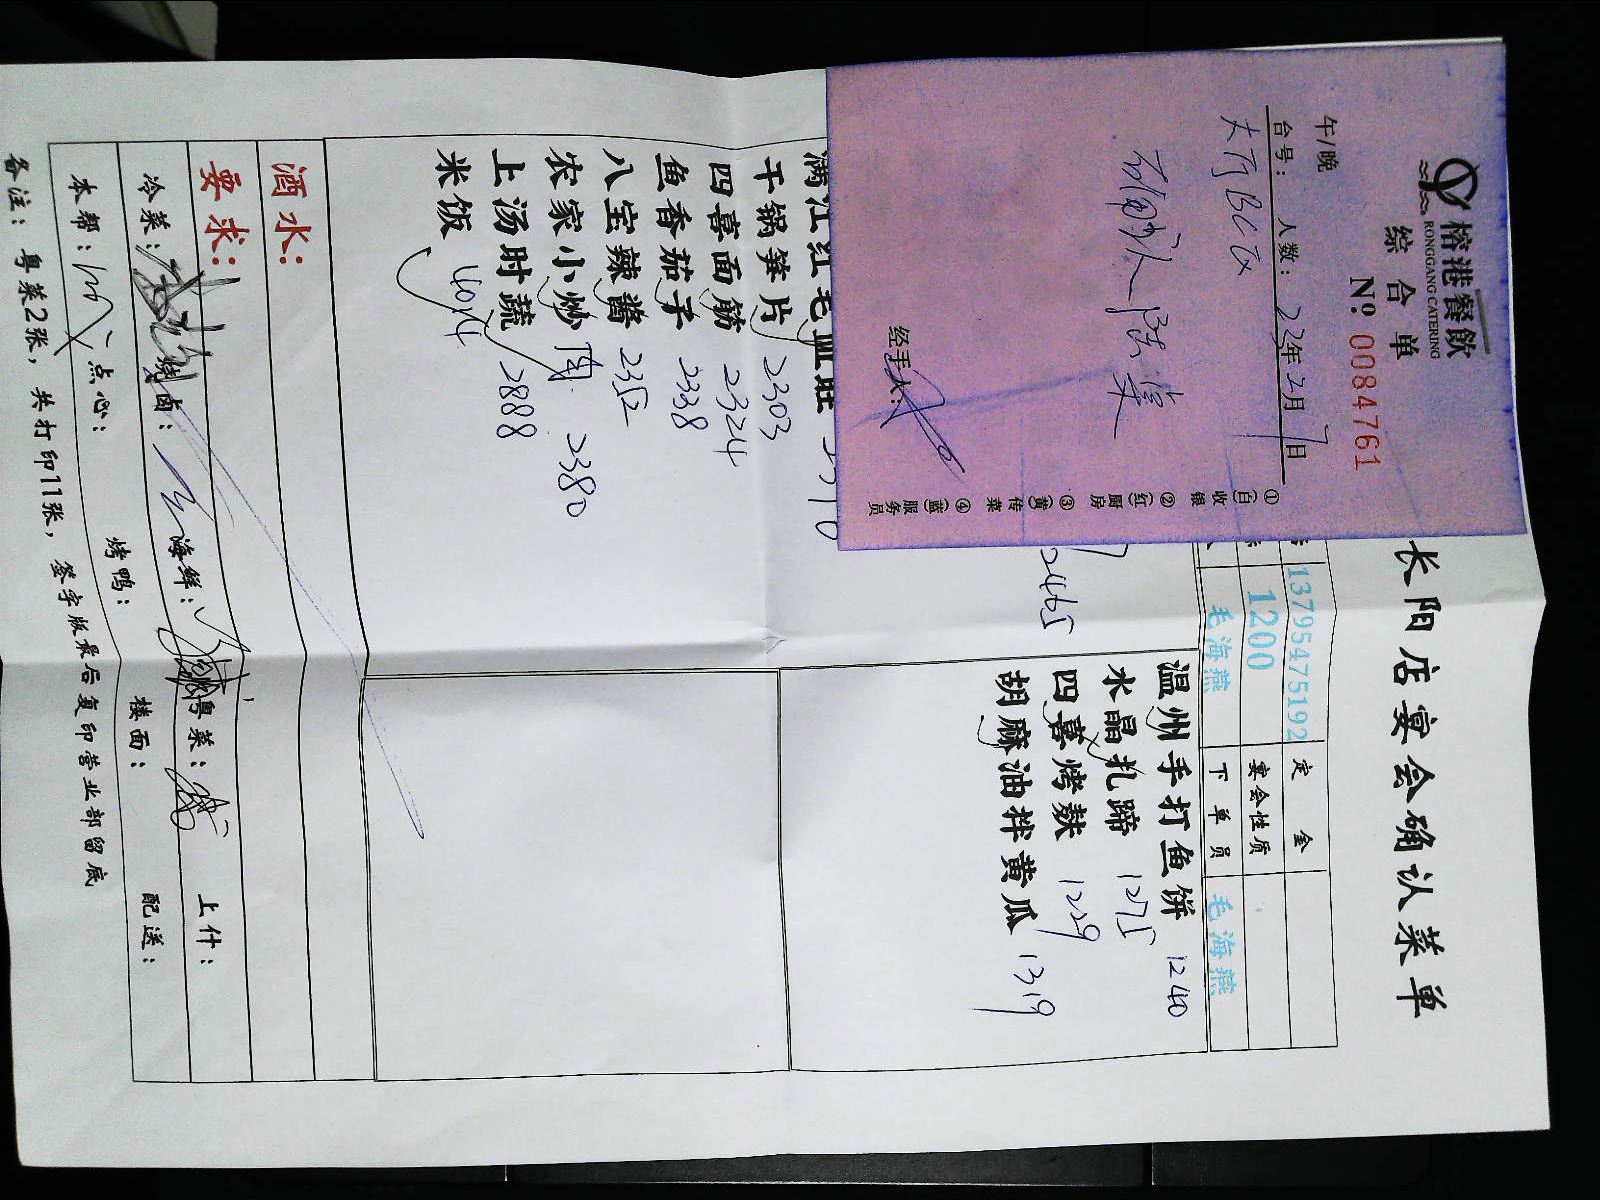 榕港餐飲
RONGGANG CATERING
综合单
№ 0084761
午/晚
台号： 人数： 22年2月7日
大厅BC区
经手人：
①（白）收银 ②（红）厨房 ③（黄）传菜 ④（蓝）服务员
长阳店宴会确认菜单
13795475192 定金
1200 宴会性质
毛海燕 下单员 毛海燕
温州手打鱼饼 1240
水晶扎蹄 1275
四喜烤麸 1229
胡麻油拌黄瓜 1319
2465
满江红毛血旺
干锅笋片 2303
四喜面筋 2324
鱼香茄子 2338
八宝辣酱 2352
农家小炒肉 2380
上汤时蔬 2888
米饭 4014
酒水：
要求：
冷菜： 烧卤： 海鲜： 粤菜： 上什：
本帮： 点心： 烤鸭： 楼面： 配送：
备注：粤菜2张，共打印11张，签字版最后复印营业部留底